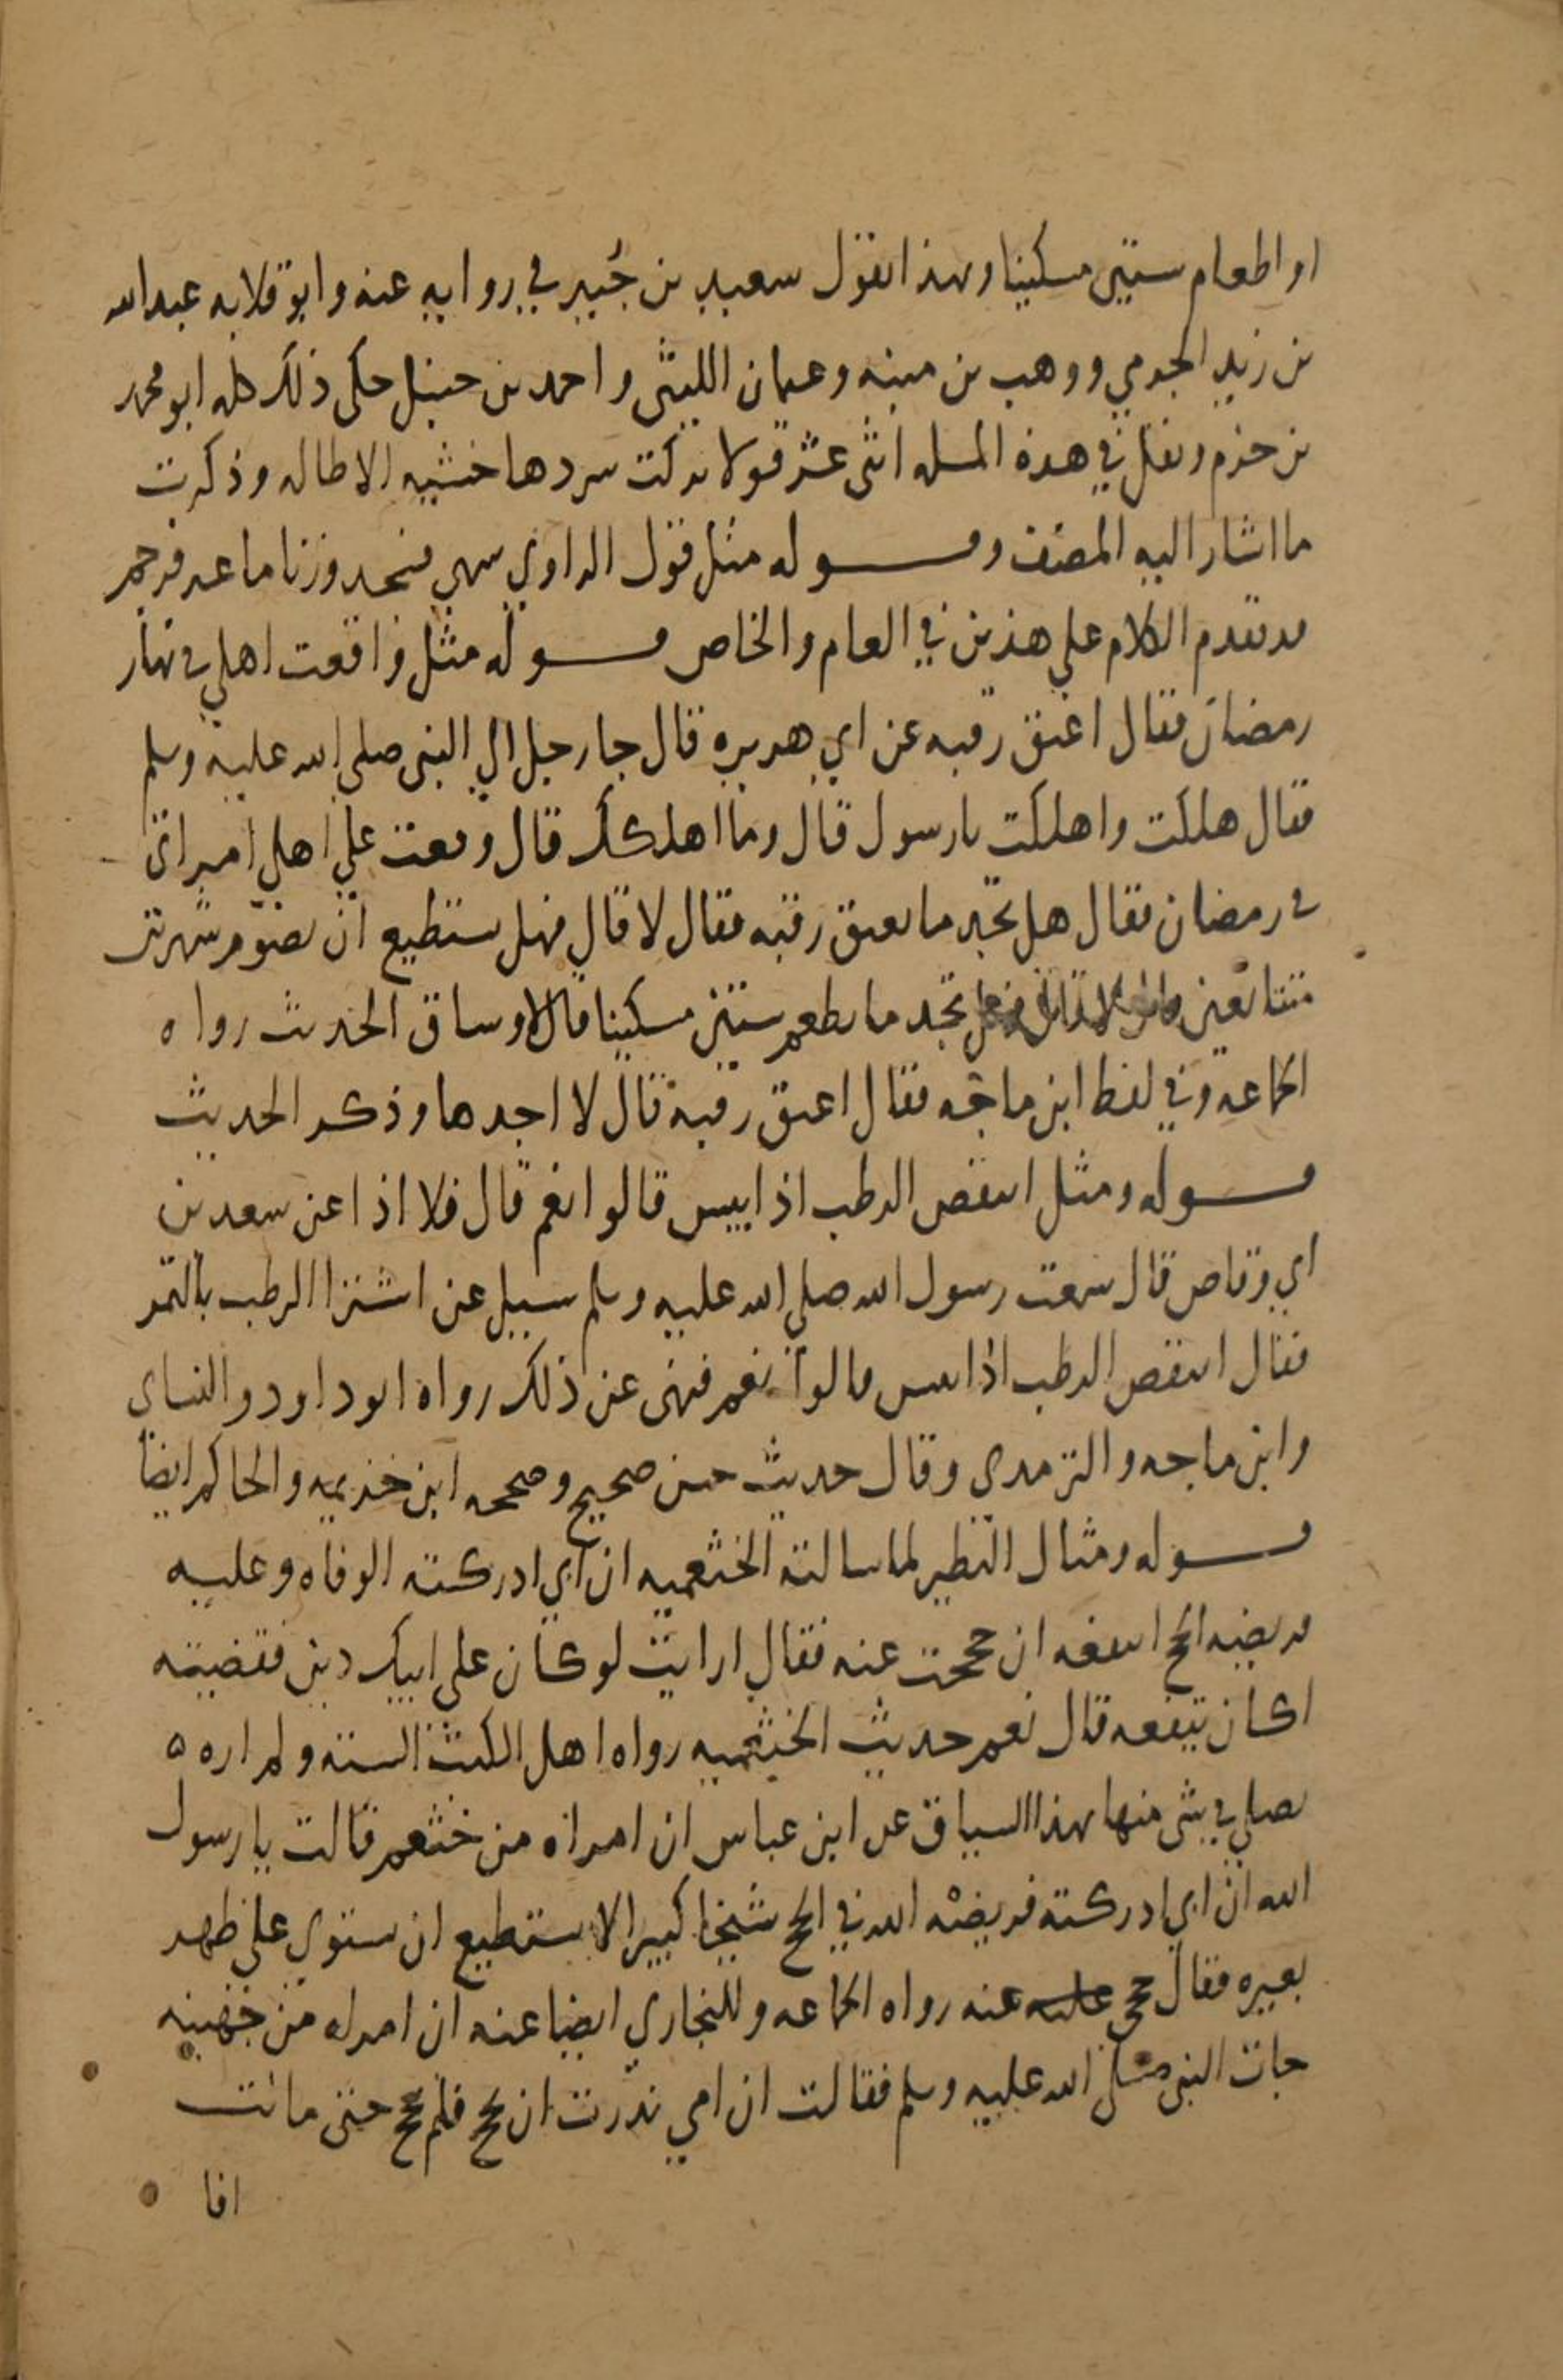 او اطعام ستين مسكينا وبهذا القول سعيد بن جُبير في روايه عنه وابو قلابه عبدالله
بن زيد الجرمي ووهب بن منبه وعثمان الليثى واحمد بن حنبل حكى ذلك كله ابو محمد
بن حزم ونقل في هذه المسله اثنى عشر قولا تركت سردها خشيه الاطاله وذكرت
ما اشار اليه المصنف وقوله مثل قول الراوي سهى فسجد وزنا ماعز فرجم
قد تقدم الكلام علي هذين في العام والخاص قوله مثل واقعت اهلي في نهار
رمضان فقال اعتق رقبه عن ابي هريره قال جا رجل الي النبى صلى الله عليه وسلم
فقال هلكت واهلكت يارسول قال وما اهلكك قال وقعت علي اهلي امراتى
في رمضان فقال هل تجد ما تعتق رقبه فقال لا قال فهل ستطيع ان تصوم شهرين
متتابعين قال لا قال فهل تجد ما تطعم ستين مسكينا قال لا وساق الحديث رواه
الجماعه وفي لفظ ابن ماجه فقال اعتق رقبة قال لا اجدها وذكر الحديث
قوله ومثل اينقص الرطب اذا يبس قالوا نعم قال فلا اذا عن سعد بن
ابي وقاص قال سمعت رسول الله صلى الله عليه وسلم سيل عن اشترا الرطب بالتمر
فقال اينقص الرطب اذا يبس قالوا نعم فنهى عن ذلك رواه ابوداود والنساي
وابن ماجه والترمدي وقال حديث حسن صحيح وصححه ابن خزيمه والحاكم ايضا
قوله ومثال النظير لما سالته الخثعميه ان ابي ادركته الوفاه وعليه
فريضه الحج اينفعه ان حججت عنه فقال ارايت لو كان علي ابيك دين فقضيته
اكان ينفعه قال نعم حديث الخثعميه رواه اهل الكتب السته ولم اره ه
يصلي في شى منها بهذا السياق عن ابن عباس ان امراه من خثعم قالت يا رسول
الله ان ابي ادركته فريضة الله في الحج شيخا كبيرا لا يستطيع ان ستوي علي ظهر
بعيره فقال حجي عليه عنه رواه الجماعه وللبخاري ايضا عنه ان امراه من جهينه
جات النبى صلى الله عليه وسلم فقالت ان امي نذرت ان تحج فلم تحج حتى ماتت
افا